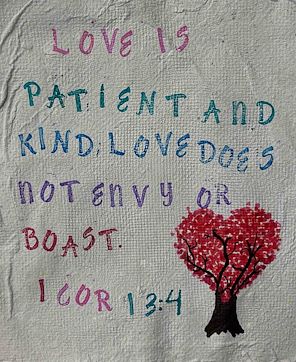 LOVE IS
PATIENT AND
KIND. LOVE DOES
NOT ENVY OR
BOAST.
1 COR 13:4